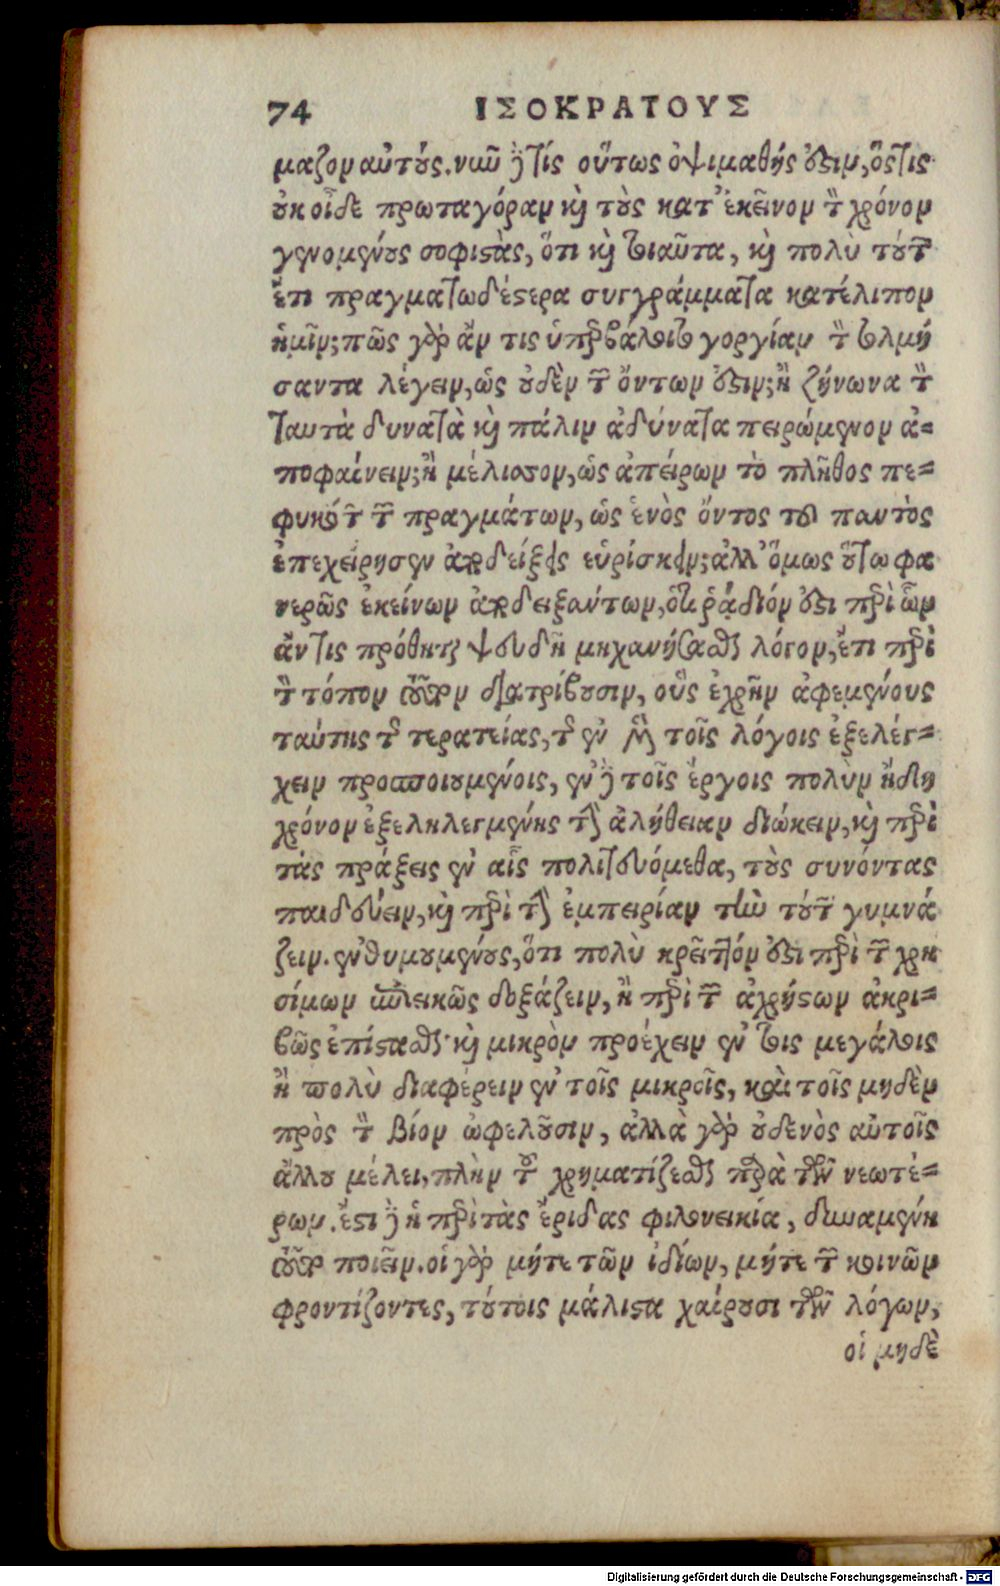 74 ΙΣΟΚΡΑΤΟΥΣ
μαζον αὐτούς. νῦν δὲ τίς οὕτως ὀψιμαθής ἐστιν, ὅστις
οὐκ οἶδε πρωταγόραν καὶ τοὺς κατ' ἐκεῖνον τὸν χρόνον
γενομένους σοφιστὰς, ὅτι καὶ τοιαῦτα, καὶ πολὺ τούτων
ἔτι πραγματωδέστερα συγγράμματα κατέλιπον
ἡμῖν; πῶς γὰρ ἄν τις ὑπερβάλοιτο γοργίαν τὸν τολμή
σαντα λέγειν, ὡς οὐδὲν τῶν ὄντων ἐστιν; ἢ ζήνωνα τὸν
ταυτὰ δυνατὰ καὶ πάλιν ἀδύνατα πειρώμενον ἀ-
ποφαίνειν; ἢ μέλισσον, ὡς ἀπείρων τὸ πλῆθος πε-
φυκότων τῶν πραγμάτων, ὡς ἑνὸς ὄντος τοῦ παντὸς
ἐπεχείρησεν ἀποδείξεις εὑρίσκειν; ἀλλ' ὅμως οὕτω φα
νερῶς ἐκείνων ἀποδειξάντων, ὅτι ῥάδιόν ἐστι περὶ ὧν
ἄν τις πρόθηται ψευδῆ μηχανήσασθαι λόγον, ἔτι περὶ
τὸν τόπον τοῦτον διατρίβουσιν, οὓς ἐχρῆν ἀφεμένους
ταύτης τῆς τερατείας, τῆς ἐν μὲν τοῖς λόγοις ἐξελέγ-
χειν προσποιουμένοις, ἐν δὲ τοῖς ἔργοις πολὺν ἤδη
χρόνον ἐξεληλεγμένης τὴν ἀλήθειαν διώκειν, καὶ περὶ
τὰς πράξεις ἐν αἷς πολιτευόμεθα, τοὺς συνόντας
παιδεύειν, καὶ περὶ τὴν ἐμπειρίαν τὴν τούτων γυμνά
ζειν. ἐνθυμουμένους, ὅτι πολὺ κρεῖττόν ἐστι περὶ τῶν χρη
σίμων ἐπιεικῶς δοξάζειν, ἢ περὶ τῶν ἀχρήστων ἀκρι-
βῶς ἐπίστασθαι· καὶ μικρὸν προέχειν ἐν τοῖς μεγάλοις
ἢ πολὺ διαφέρειν ἐν τοῖς μικροῖς, καὶ τοῖς μηδὲν
πρὸς τὸν βίον ὠφελοῦσιν, ἀλλὰ γὰρ οὐδενὸς αὐτοῖς
ἄλλου μέλει, πλὴν τοῦ χρηματίζεσθαι παρὰ τῶν νεωτέ-
ρων. ἔστι δὲ ἡ περὶ τὰς ἔριδας φιλονεικία, δυναμένη
τοῦτο ποιεῖν. οἱ γὰρ μήτε τῶν ἰδίων, μήτε τῶν κοινῶν
φροντίζοντες, τούτοις μάλιστα χαίρουσι τῶν λόγων,
οἱ μηδὲ
Digitalisierung gefördert durch die Deutsche Forschungsgemeinschaft - DFG